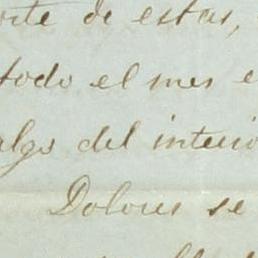 de estas,
todo el mes
algo del interio
Dolores se